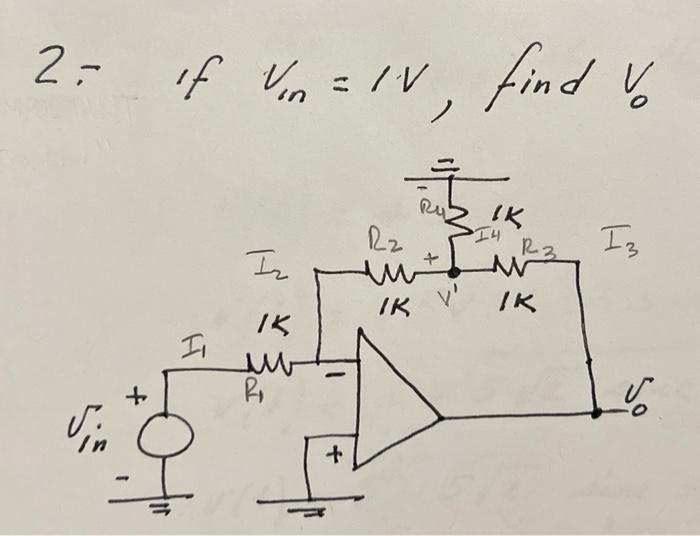 2.- if Vin = 1V, find Vo
R4 1K
I4
I2 R2 + R3 I3
1K V' 1K
1K
I1
R1
+ -
Vin Vo
+
-